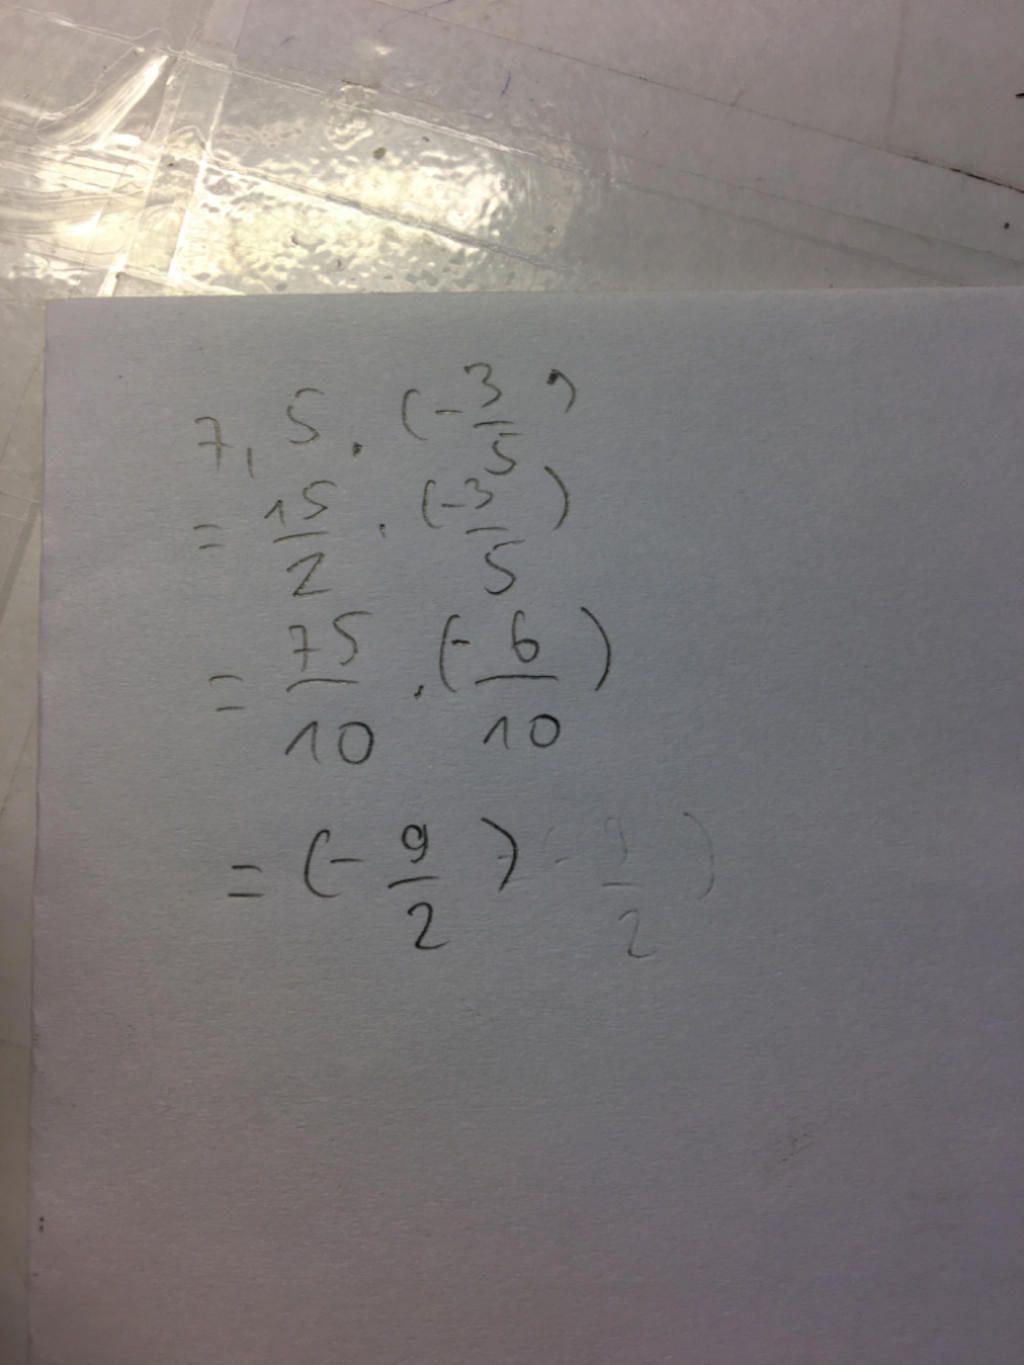 7,5 · (-3/5)
= 15/2 · (-3/5)
= 75/10 · (-6/10)
= (-9/2) - 9/2)